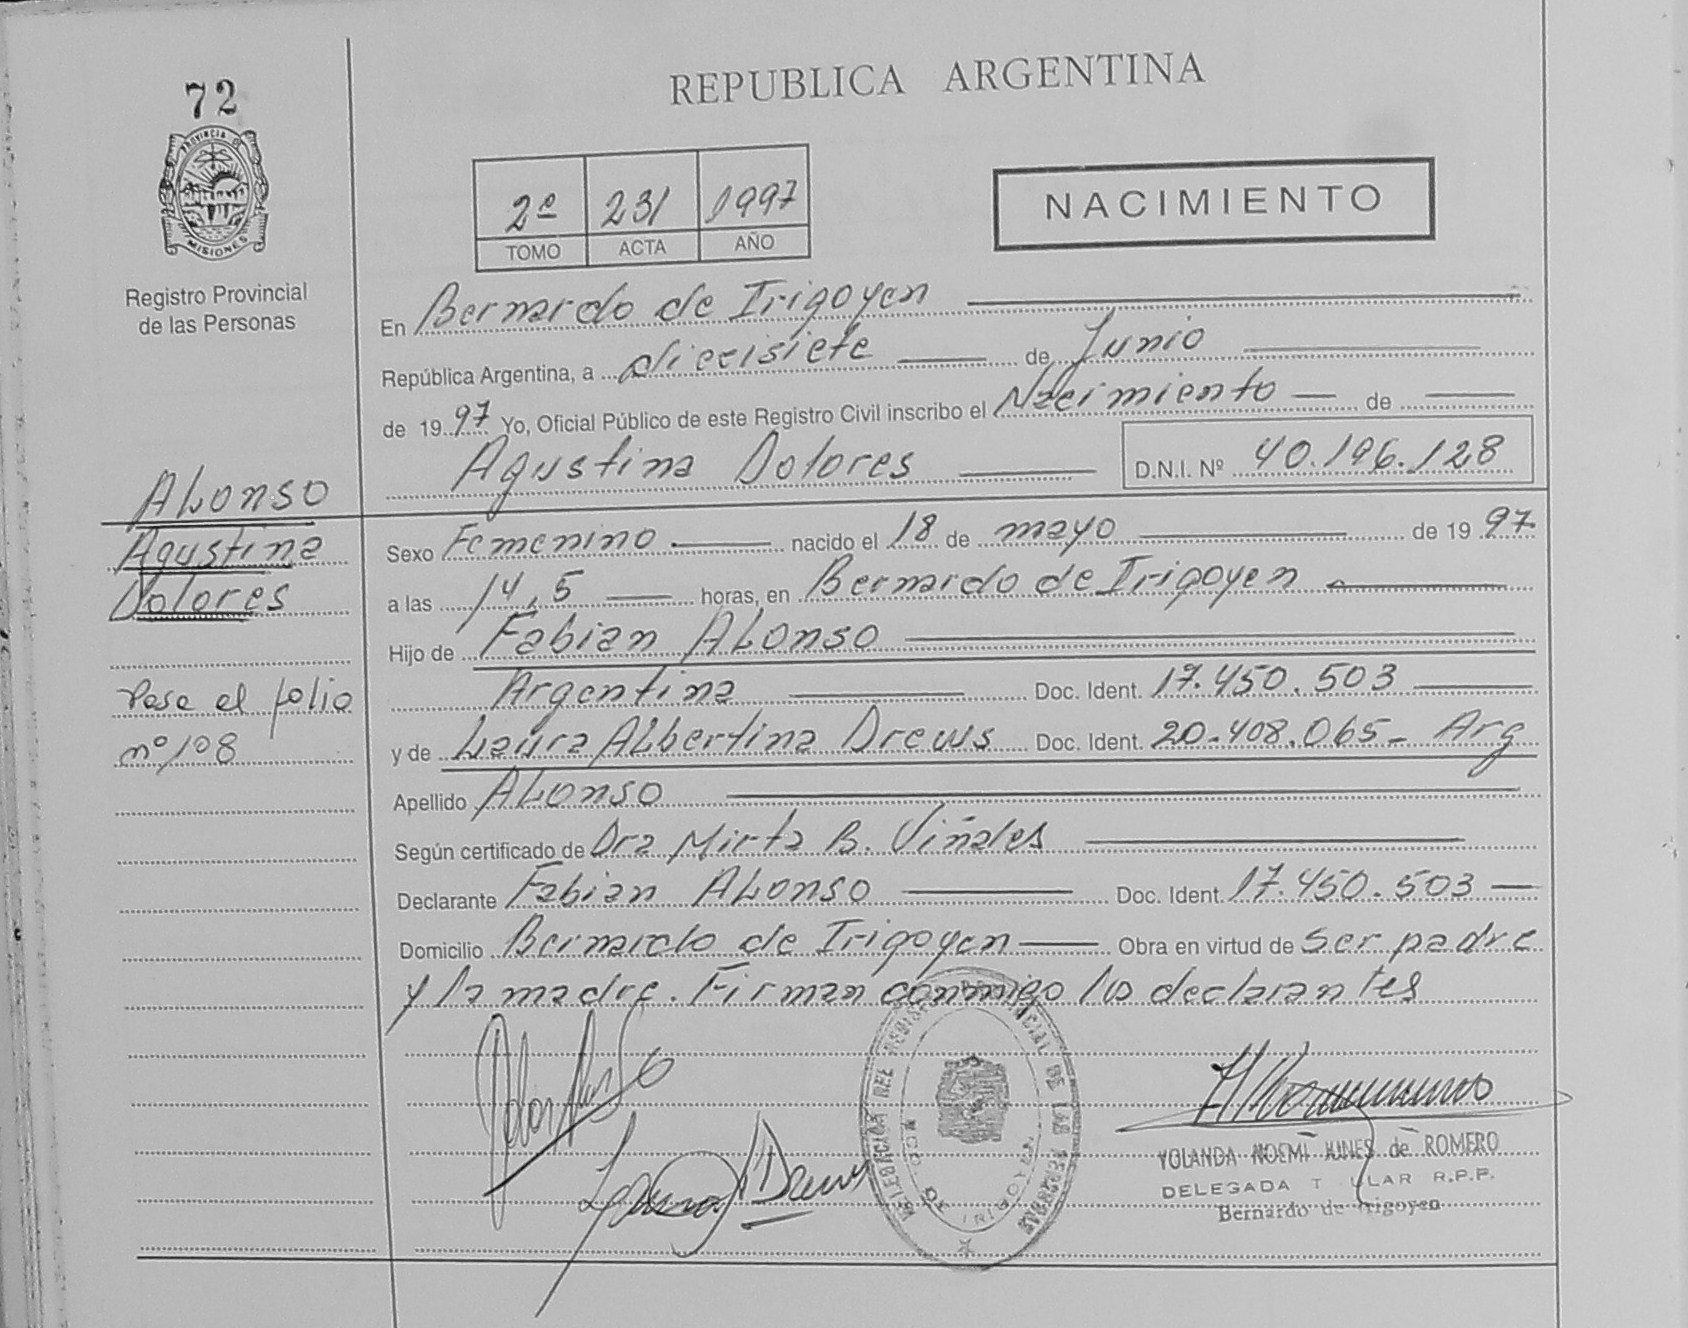 72
REPUBLICA ARGENTINA
PROVINCIA DE
MISIONES
Registro Provincial
de las Personas
2º 231 1997
TOMO ACTA AÑO
NACIMIENTO
En Bernardo de Irigoyen
República Argentina, a diecisiete de Junio
de 1997 Yo, Oficial Público de este Registro Civil inscribo el Nacimiento de
Agustina Dolores D.N.I. Nº 40.196.128
Alonso
Agustina
Dolores
Pase al folio
nº 108
Sexo Femenino nacido el 18 de mayo de 1997
a las 14,5 horas, en Bernardo de Irigoyen
Hijo de Fabian Alonso
Argentina Doc. Ident. 17.450.503
y de Laura Albertina Drews Doc. Ident. 20.408.065- Arg
Apellido Alonso
Según certificado de Dra Mirta B. Viñales
Declarante Fabian Alonso Doc. Ident. 17.450.503
Domicilio Bernardo de Irigoyen Obra en virtud de ser padre
y la madre. Firman conmigo los declarantes
DELEGACION DEL REGISTRO PROVINCIAL DE LAS PERSONAS
BDO. DE IRIGOYEN
YOLANDA NOEMI de ROMERO
DELEGADA R.P.P.
Bernardo de Irigoyen